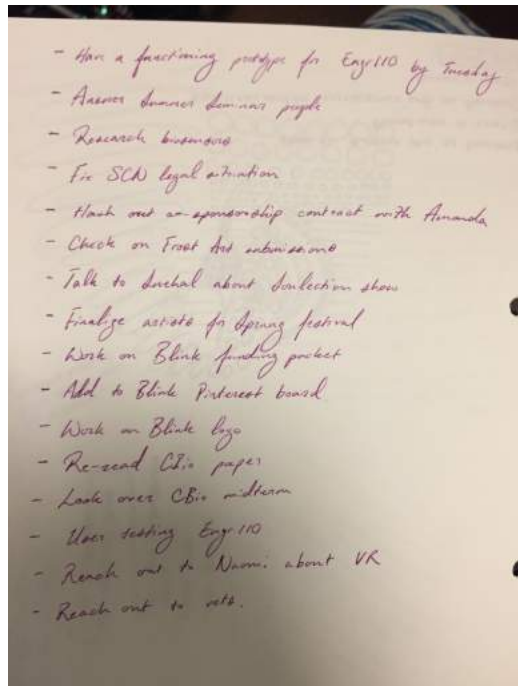 - Have a functioning prototype for Engr110 by Tuesday
- Answer Summer Seminar people
- Research biosensors
- Fix SCN legal situation
- Hash out co-sponsorship contract with Amanda
- Check on Frost Art submissions
- Talk to Aschal about Soulection show
- Finalize artists for Sprung festival
- Work on Blink funding packet
- Add to Blink Pinterest board
- Work on Blink logo
- Re-read CBio paper
- Look over CBio midterm
- User testing Engr110
- Reach out to Naomi about VR
- Reach out to vets.